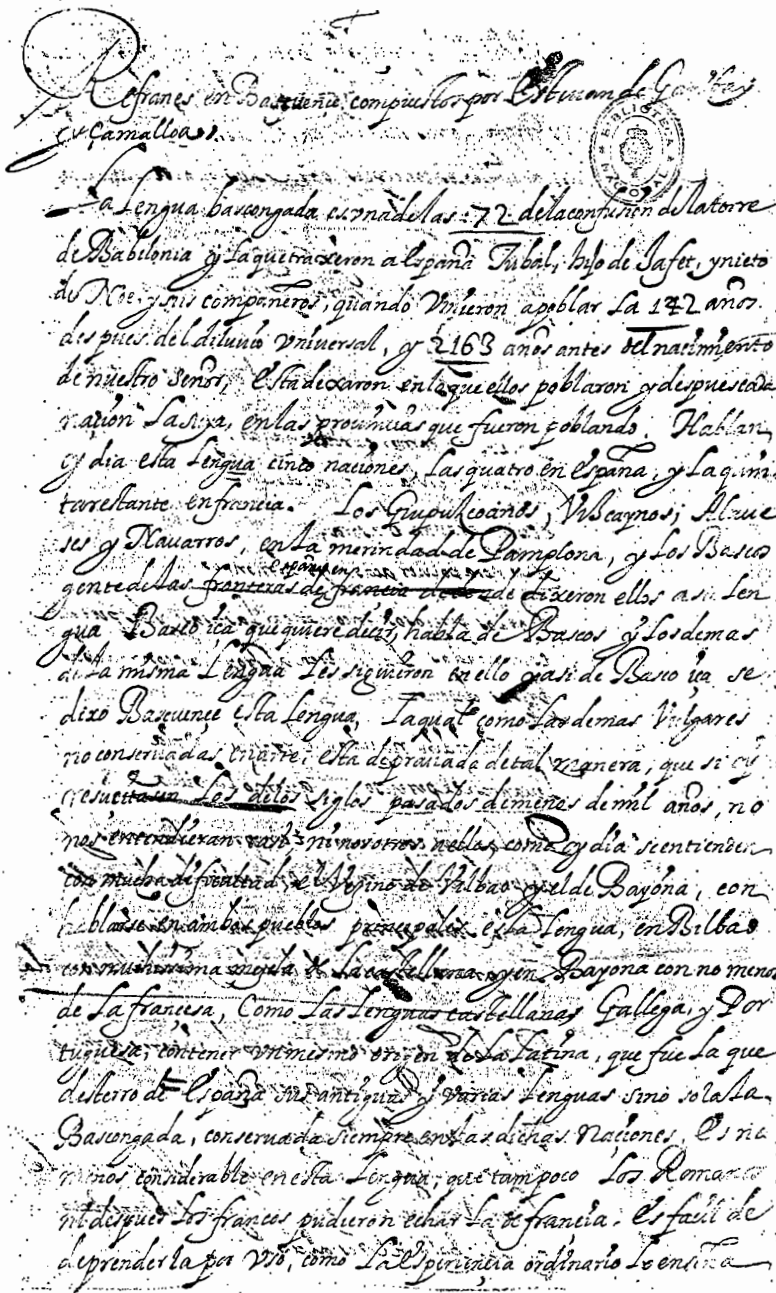 Refranes en Bascuence compuestos por Esteuan de Garibay
y Camalloa.
BIBLIOTECA NACIONAL
La Lengua bascongada es vna de las 72 de la confusion de la torre
de Babilonia y la que traxeron a España Tubal, hijo de Jafet, y nieto
de Noe, y sus compañeros, quando vinieron a poblar la 142 años
despues del diluuio vniuersal, y 2163 años antes del nacimiento
de nuestro señor, esta dexaron en lo que ellos poblaron y despues cada
nacion la suya, en las prouincias que fueron poblando. Hablan
oy dia esta Lengua cinco naciones, las quatro en españa, y la quin
ta restante en francia. Los Guipuzcoanos, Vizcaynos, Alaue
ses y Navarros, en la merindad de Pamplona, y los Bascos
españa en
gente de las fronteras de francia de dixeron ellos a su len
gua Basco iça que quiere decir, habla de Bascos y los demas
de la misma Lengua les siguieron en ello y asi de Basco iça se
dixo Bascuence esta Lengua, La qual como las demas Vulgares
no conseruadas en arte, esta deprauada de tal manera, que si oy
los de los siglos pasados de menos de mil años, no
nos entendieran ni nosotros a ellos, como oy dia se entienden
con mucha dificultad, el Vezino de Vilbao y el de Bayona, con
hablarse en ambos pueblos principales esta Lengua, en Bilbao
con muchissima mezcla de la castellana y en Bayona con no menos
de la francesa, Como las Lenguas castellanas Gallega, y Por
tuguesa, contener vn mesmo origen de la Latina, que fue la que
desterro de España sus antiguas y varias Lenguas sino sola la
Bascongada, conseruada siempre en las dichas naciones, Es no
menos considerable en esta Lengua, que tampoco los Romanos
ni despues los francos pudieron echar la de francia. es facil de
deprenderla por vso, como la esperiencia ordinario lo enseña